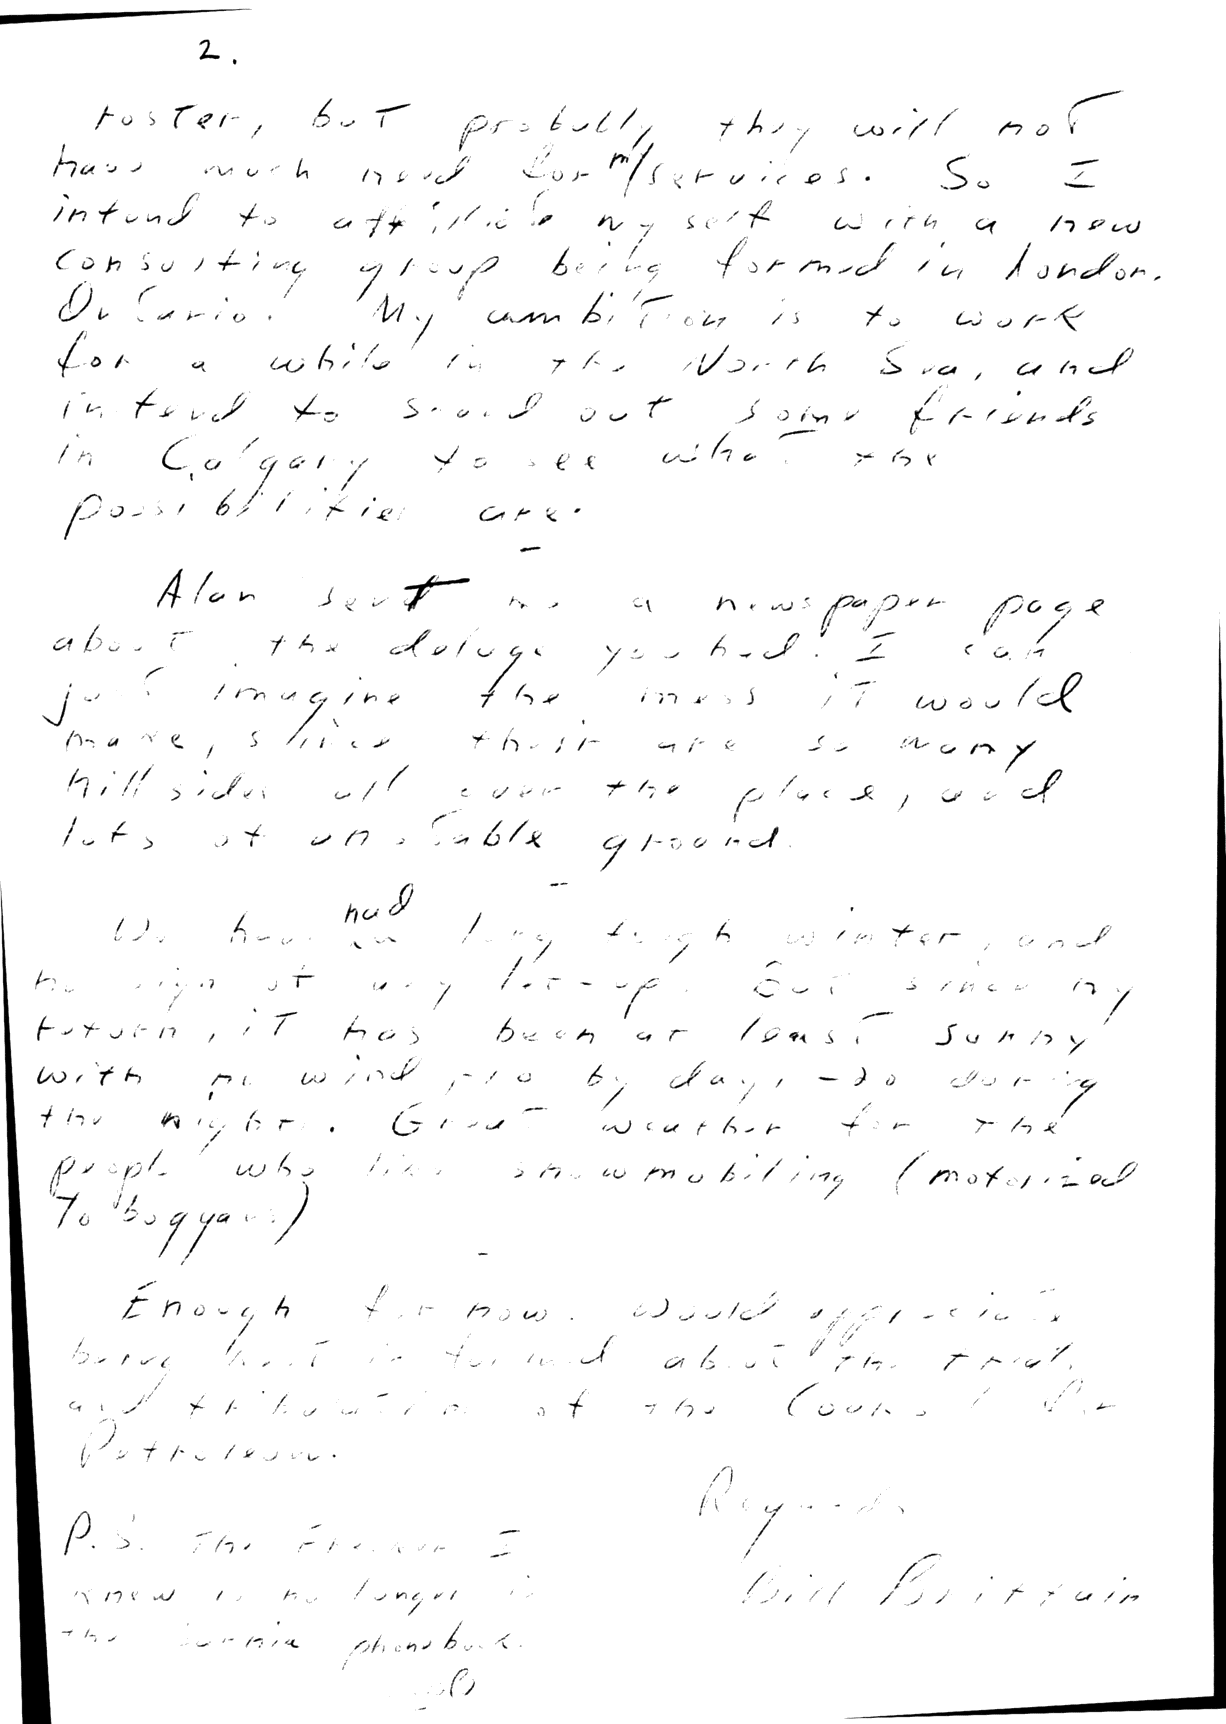 2.
roster, but probably they will not
have much need for my services. So I
intend to affiliate myself with a new
consulting group being formed in London.
Ontario. My ambition is to work
for a while in the North Sea, and
intend to sound out some friends
in Calgary to see what the
possibilities are.
Alan sent me a newspaper page
about the deluge you had. I can
just imagine the mess it would
make, since their are so many
hillsides all over the place, and
lots of unstable ground.
We have had a long tough winter, and
no sign of any let-up. But since my
return, it has been at least sunny
with no wind by day, -20 during
the night. Great weather for the
people who like snowmobiling (motorized
Toboggans)
Enough for now. Would appreciate
being kept informed about the trials
and tribulations of the Council for
Petroleum.
Regards
Bill Brittain
P.S. The I
knew is no longer in
the Sarnia phonebook.